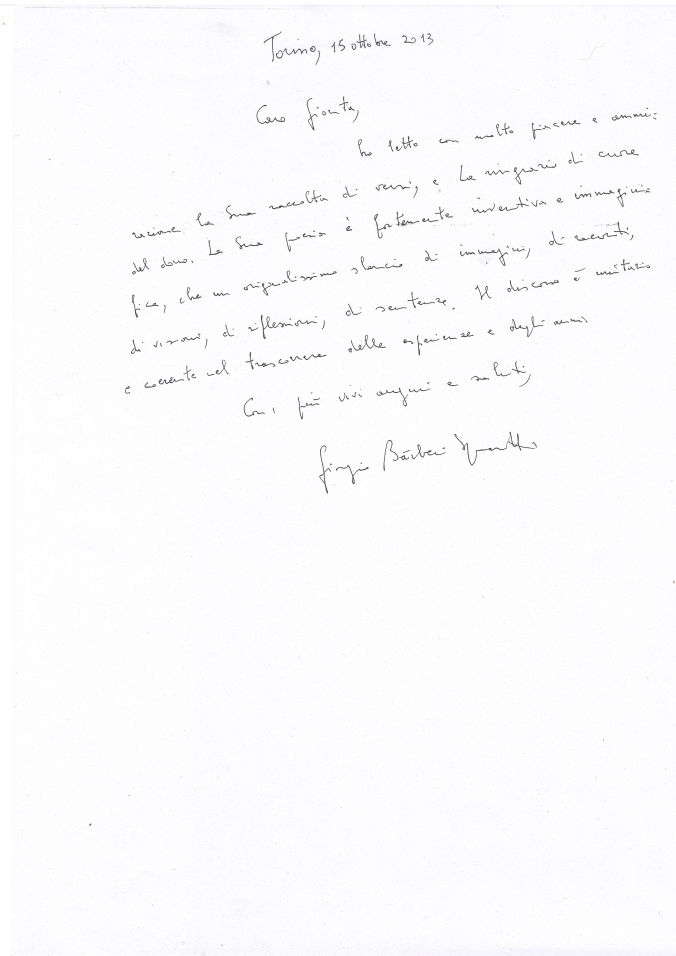 Torino, 15 ottobre 2013
Caro Gionta,
ho letto con molto piacere e ammi-
razione la Sua raccolta di versi, e La ringrazio di cuore
del dono. La Sua poesia è fortemente inventiva e immagini-
fica, che un originalissimo slancio di immagini, di racconti,
di visioni, di riflessioni, di sentenze. Il discorso è unitario
e coerente nel trascorrere delle esperienze e degli anni.
Con i più vivi auguri e saluti,
Giorgio Bàrberi Squarotti